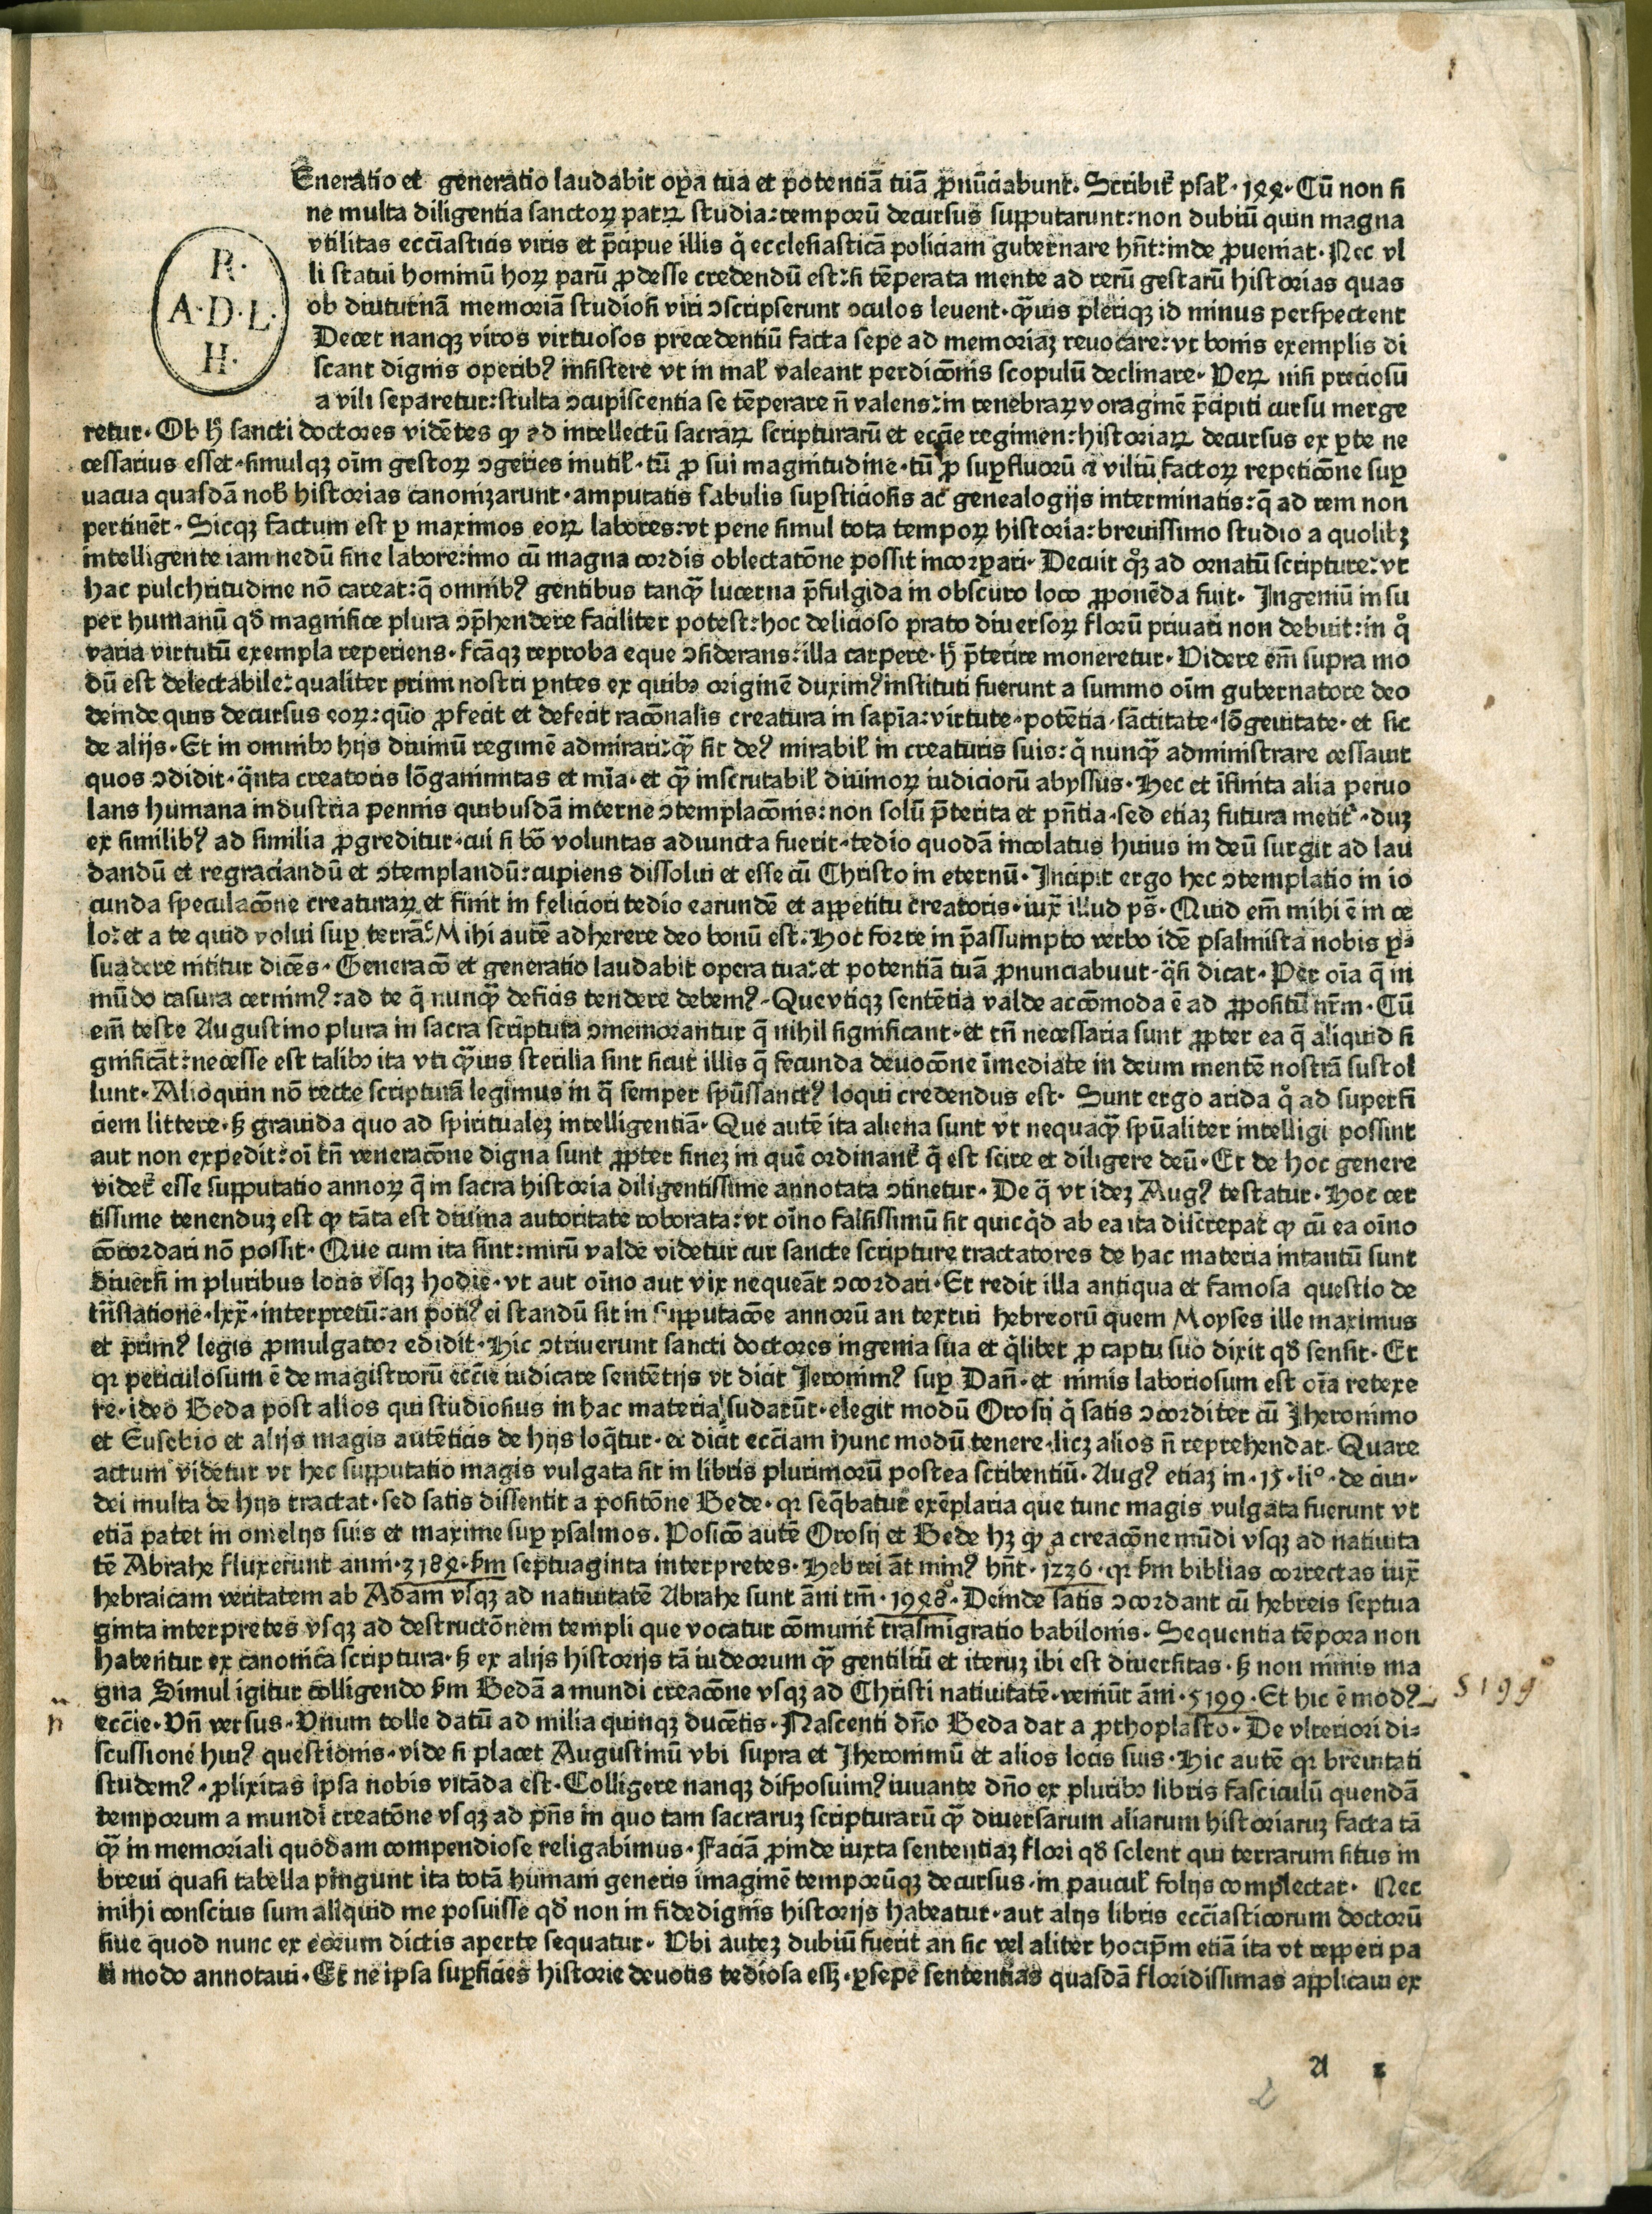 Eneratio et generatio laudabit oꝑa tua et potentiā tuā ꝓnūciabunt. Scribit᷑ psal᷑. 144. Cū non si
ne multa diligentia sanctoꝝ patꝝ studia: temporū decursus supputarunt: non dubiū quin magna
vtilitas ecciāsticis viris et p̄cipue illis q̇ ecclesiasticā policiam gubernare hn̄t: inde ꝓueniat. Nec vl
li statui hominū hoꝝ parū ꝓdesse credendū est: si tēperata mente ad rerū gestarū historias quas
R. A. D. L. H.
ob diuturnā memoriā studiosi viri ↄscripserunt oculos leuent. q̄uis pleriqꝫ id minus perspectent
Decet nanqꝫ viros virtuosos precedentiū facta sepe ad memoriaꝫ reuocare: vt bonis exemplis di
scant dignis operibꝰ insistere vt in mal᷑ valeant perdicōnis scopulū declinare. Veꝝ nisi preciosū
a vili separetur: stulta ↄcupiscentia se tēperare n̄ valens: in tenebraꝝ voraginē p̄cipiti cursu merge
retur. Ob hͦ sancti doctores vidētes ꝙ ad intellectū sacraꝝ scripturarū et eccīe regimen: historiaꝝ decursus ex ꝑte ne
cessarius esset. simulqꝫ oīm gestoꝝ ↄgeries inutil᷑. tū ꝓ sui magnitudine. tū ꝓ suꝑfluorū ⁊ viliū factoꝝ repeticōne suꝑ
uacua quasdā nob᷑ historias canonizarunt. amputatis fabulis suꝑsticiosis ac genealogijs interminatis: q̄ ad rem non
pertinēt. Sicqꝫ factum est ꝑ maximos eoꝝ labores: vt pene simul tota tempoꝝ historia: breuissimo studio a quolibꝫ
intelligente iam nedū sine labore: imo cū magna cordis oblectatōne possit incorꝑari. Decuit qͦꝫ ad ornatū scripture: vt
hac pulchritudine nō careat: q̄ omnibꝰ gentibus tanq̄ lucerna p̄fulgida in obscuro loco ꝓponēda fuit. Ingeniū insu
per humanū qd᷑ magnifice plura ↄp̄hendere faciliter potest: hoc delicioso prato diuersoꝝ florū priuari non debuit: in qͦ
varia virtutū exempla reperiens. fcāqꝫ reproba eque ↄsiderans: illa carpere. hͦ p̄terire moneretur. Videre em̄ supra mo
dū est delectabile: qualiter primi nostri ꝑntes ex quibꝰ originē duximꝰ instituti fuerunt a summo oīm gubernatore deo
deinde quis decursus eoꝝ: quō ꝓfecit et defecit racōnalis creatura in sapīa: virtute. potētia. sāctitate. lōgeuitate. et sic
de alijs. Et in omnibꝰ hijs diuinū regimē admirari: q̄ sit deꝰ mirabil᷑ in creaturis suis: q̇ nunq̄ administrare cessauit
quos ↄdidit. q̄nta creatoris lōganimitas et mīa. et q̄ inscrutabil᷑ diuinoꝝ iudiciorū abyssus. Hec et īfinita alia peruo
lans humana industria pennis quibusdā interne ↄtemplacōnis: non solū p̄terita et pn̄tia. sed etiaꝫ futura metit᷑. duꝫ
ex similibꝰ ad similia ꝓgreditur. cui si bō voluntas adiuncta fuerit. tedio quodā incolatus huius in deū surgit ad lau
dandū et regraciandū et ↄtemplandū: cupiens dissolui et esse cū Christo in eternū. Incipit ergo hec ↄtemplatio in io
cunda speculacōne creaturaꝝ et finit in feliciori tedio earundē et appetitu creatoris. iux̄ illud ps̄. Quid em̄ mihi ē in ce
lo: et a te quid volui suꝑ terrā? Mihi autē adherere deo bonū est. Hoc forte in p̄assumpto verbo idē psalmista nobis ꝑ⸗
suadere nititur dicēs. Generacō et generatio laudabit opera tua: et potentiā tuā ꝓnunciabuut. q̄si dicat. Per oīa q̄ in
mūdo casura cernimꝰ: ad te q̄ nunq̄ deficis tendere debemꝰ. Que vtiqꝫ sentētia valde accōmoda ē ad ꝓpositū nr̄m. Cū
em̄ teste Augustino plura in sacra scriptura ↄmemorantur q̄ nihil significant. et tn̄ necessaria sunt ꝓpter ea q̄ aliquid si
gnificāt: necesse est talibꝰ ita vti q̄uis sterilia sint sicut illis q̄ fecunda deuocōne īmediate in deum mentē nostrā sustol
lunt. Alioquin nō recte scripturā legimus in q̄ semper spūssanctꝰ loqui credendus est. Sunt ergo arida qͦ ad superfi
ciem littere. hͦ grauida quo ad spiritualeꝫ intelligentiā. Que autē ita aliena sunt vt nequaq̄ spūaliter intelligi possint
aut non expedit: oī tn̄ veneracōne digna sunt ꝓpter fineꝫ in quē ordinant᷑ q̄ est scire et diligere deū. Et de hoc genere
videt᷑ esse supputatio annoꝝ q̄ in sacra historia diligentissime annotata ↄtinetur. De q̄ vt ideꝫ Augꝰ testatur. Hoc cer
tissime tenenduꝫ est ꝙ tāta est diuina autoritate roborata: vt oīno falsissimū sit quicq̇d ab ea ita discrepat ꝙ cū ea oīno
cōcordari nō possit. Que cum ita sint: mirū valde videtur cur sancte scripture tractatores de hac materia intantū sunt
diuersi in pluribus locis vsqꝫ hodie. vt aut oīno aut vix nequeāt ↄcordari. Et redit illa antiqua et famosa questio de
trn̄slatione. lxx̄. interpretū: an potiꝰ ei standū sit in supputacōe annorū an textui hebreorū quem Moyses ille maximus
et p̄rimꝰ legis ꝓmulgator edidit. Hic ↄtriuerunt sancti doctores ingenia sua et q̇libet ꝓ captu suo dixit qd᷑ sensit. Et
qr periculosum ē de magistrorū eccīe iudicare sentētijs vt dicit Jeronimꝰ suꝑ Dan̄. et nimis laboriosum est oīa retexe
re. ideo Beda post alios qui studiosius in hac materia sudarūt. elegit modū Orosij q̇ satis ↄcorditer cū Jheronimo
et Eusebio et alijs magis autēticis de hijs loq̄tur. et dicit ecciam hunc modū tenere. licꝫ alios n̄ reprehendat. Quare
actum videtur vt hec supputatio magis vulgata sit in libris plurimorū postea scribentiū. Augꝰ etiaꝫ in. 15. li°. de ciui.
dei multa de hijs tractat. sed satis dissentit a positōne Bede. qr seq̄batur exēplaria que tunc magis vulgata fuerunt vt
etiā patet in omelijs suis et maxime suꝑ psalmos. Posicō autē Orosij et Bede hꝫ ꝙ a creacōne mūdi vsqꝫ ad natiuita
tē Abrahe fluxerunt anni. 3184. ẜm septuaginta interpretes. Hebrei āt minꝰ hn̄t. 1236. qr ẜm biblias correctas iux̄
hebraicam veritatem ab Adam vsqꝫ ad natiuitatē Abrahe sunt āni tm̄. 1948. Deinde satis ↄcordant cū hebreis septua
ginta interpretes vsqꝫ ad destructōnem templi que vocatur cōmunit᷑ trāsmigratio babilonis. Sequentia tēpora non
habentur ex canonica scriptura. hͦ ex alijs historijs tā iudeorum q̄ gentiliū et iteruꝫ ibi est diuersitas. hͦ non nimis ma
gna Simul igitur colligendo ẜm Bedā a mundi creacōne vsqꝫ ad Christi natiuitatē. veniūt āni. 5199. Et hic ē modꝰ
5199
eccīe. Vn̄ versus. Vnum tolle datū ad milia quinqꝫ ducētis. Nascenti dn̄o Beda dat a ꝓthoplasto. De vlteriori di⸗
scussione huiꝰ questionis. vide si placet Augustinū vbi supra et Jheronimū et alios locis suis. Hic autē qr breuitati
studemꝰ. ꝓlixitas ipsa nobis vitāda est. Colligere nanqꝫ disposuimꝰ iuuante dn̄o ex pluribꝰ libris fasciculū quendā
temporum a mundi creatōne vsqꝫ ad pn̄s in quo tam sacraruꝫ scripturarū q̄ diuersarum aliarum historiaruꝫ facta tā
q̄ in memoriali quodam compendiose religabimus. Faciā ꝓinde iuxta sententiaꝫ flori qd᷑ solent qui terrarum situs in
breui quasi tabella pingunt ita totā humani generis imaginē temporūqꝫ decursus. in paucul᷑ folijs complectar. Nec
mihi conscius sum aliquid me posuisse qd᷑ non in fidedignis historijs habeatur. aut alijs libris ecciāsticorum doctorū
siue quod nunc ex eorum dictis aperte sequatur. Vbi auteꝫ dubiū fuerit an sic vel aliter hocip̄m etiā ita vt repperi pa
ri modo annotaui. Et ne ipsa suꝑficies historie deuotis tediosa essꝫ. ꝑsepe sententias quasdā floridissimas applicaui ex
A 2